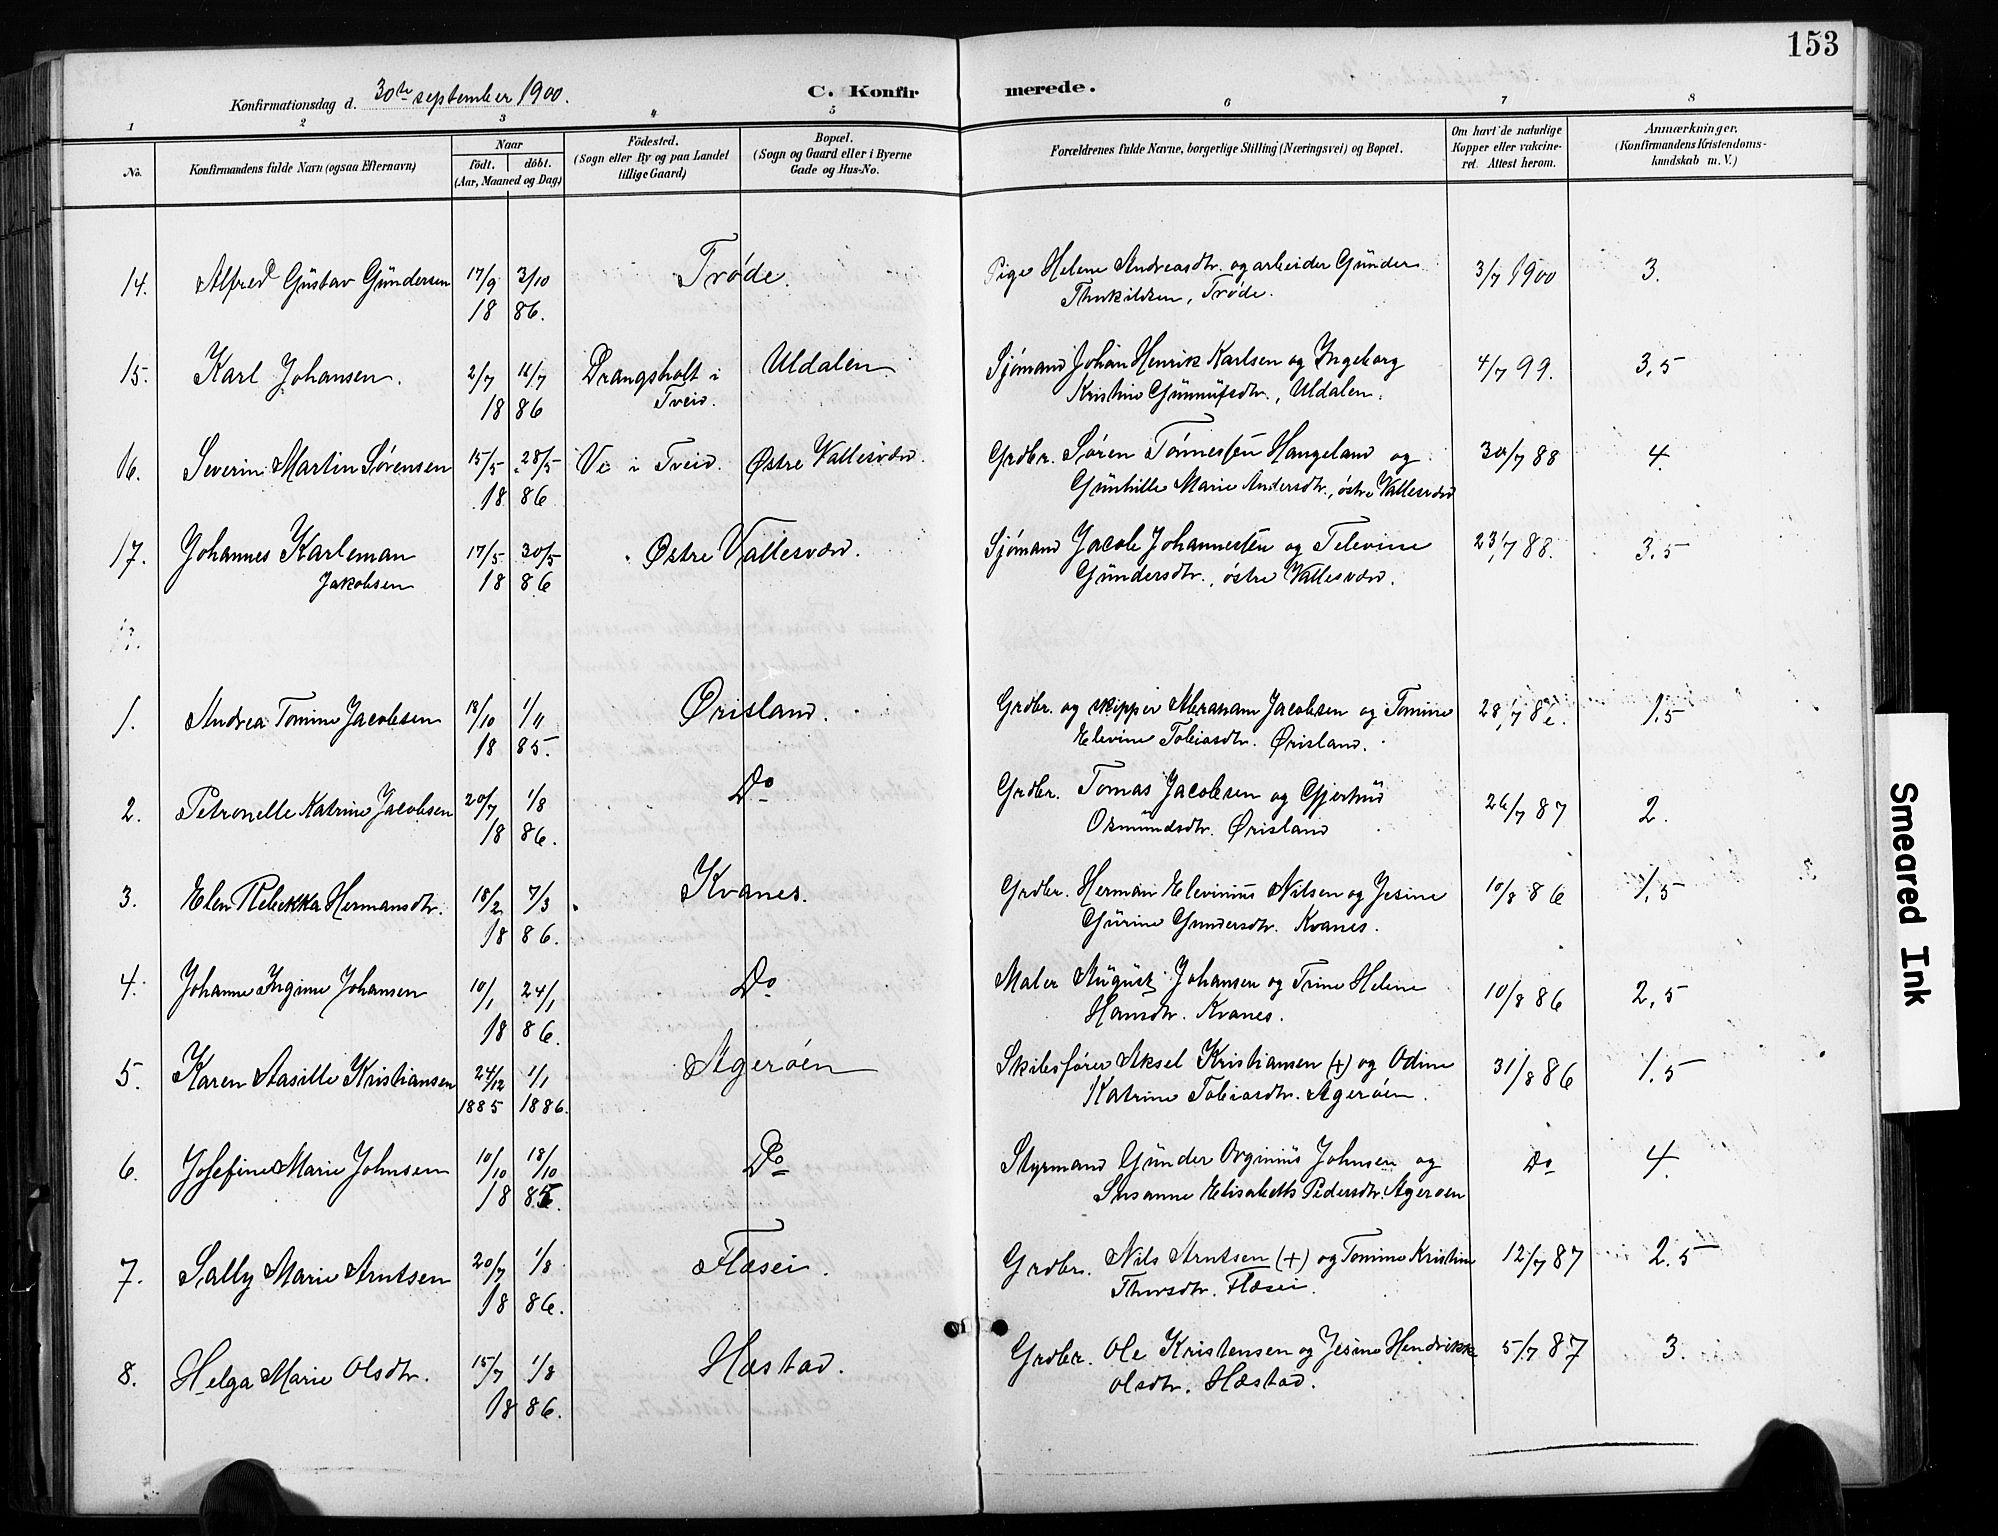 153
Konfirmationsdag d. 30te september 1900.
C. Konfirmerede.
1 2 3 4 5 6 7 8
No.
Konfirmandens fulde Navn (ogsaa Efternavn)
Naar
födt. döbt.
(Aar, Maaned og Dag)
Födested.
(Sogn eller By og paa Landet
tillige Gaard)
Bopæl.
(Sogn og Gaard eller i Byerne
Gade og Hus-No.
Forældrenes fulde Navne, borgerlige Stilling (Næringsvei) og Bopæl.
Om havt de naturlige
Kopper eller vakcine-
ret. Attest herom.
Anmærkninger.
(Konfirmandens Kristendoms-
kundskab m. V.)
14. Alfred Gustav Gundersen 17/9 3/10 Trøde. Pige Helene Andreasdtr. og arbeider Gunder 3/7 1900 3.
18 86. Thorkildsen, Trøde.
15. Karl Johansen. 2/7 16/7 Drangsholt i Uldalen Sjømand Johan Henrik Karlsen og Ingeborg 4/7 99. 3,5
18 86 Tveid. Kristine Gunnufsdtr., Uldalen.
16. Severin Martin Sørensen 15/5 28/5 Ve i Tveid. Østre Vallesværd. Grdbr. Søren Tønnessen Hangeland og 30/7 88 4.
18 86 Gunhille Marie Andersdtr., østre Vallesværd
17. Johannes Karleman 17/5 30/5 Østre Vallesværd. Sjømand Jacob Johannessen og Televine 23/7 88. 3,5
Jakobsen 18 86 Gundersdtr., østre Vallesværd.
1. Andrea Tomine Jacobsen 18/10 1/11 Ørisland. Grdbr. og skipper Abraham Jacobsen og Tomine 28/7 86. 1,5
18 85. Elevine Tobiasdtr. Ørisland.
2. Petronelle Katrine Jacobsen 20/7 1/8 Do Grdbr. Tomas Jacobsen og Gjertrud 26/7 87 2.
18 86. Osmundsdtr. Ørisland
3. Elen Rebekka Hermansdtr. 18/2 7/3 Kvanes. Grdbr. Herman Elevinius Nilsen og Jesine 10/8 86 1,5
18 86. Gurine Gundersdtr. Kvanes.
4. Johanne Ingine Johansen 10/1 24/1 Do Maler August Johansen og Trine Helene 10/8 86 2,5
18 86. Hansdtr. Kvanes.
5. Karen Aasille Kristiansen 24/12 1/1 Agerøen Skibsfører Aksel Kristiansen (+) og Odine 31/8 86 1,5
1885 1886. Katrine Tobiasdtr. Agerøen.
6. Josefine Marie Johnsen 10/10 18/10 Do Styrmand Gunder Orginius Johnsen og Do 4.
18 85 Susanne Elisabeth Pedersdtr. Agerøen
7. Sally Marie Arntsen 20/7 1/8 Flæsei. Grdbr. Nils Arntsen (+) og Tomine Kristine 12/7 87 2,5
18 86. Thorsdtr. Flæsei.
8. Helga Marie Olsdtr. 15/7 1/8 Hæstad. Grdbr. Ole Kristensen og Jesine Hendrikke 5/7 87 3.
18 86. Olsdtr. Hæstad.
Smeared Ink